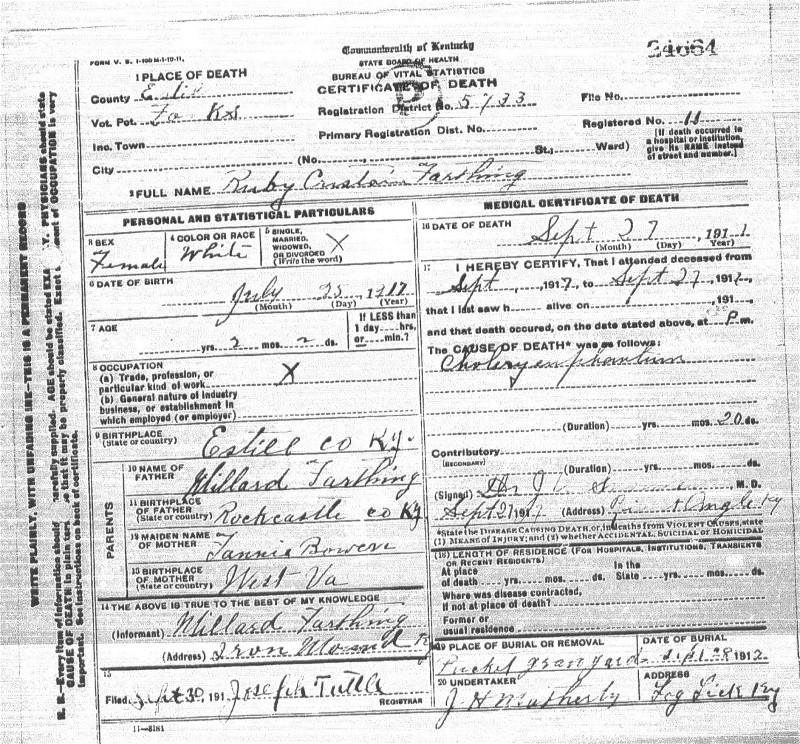 FORM V. S. 1-100 M-1-10-11.
Commonwealth of Kentucky
34664
STATE BOARD OF HEALTH
BUREAU OF VITAL STATISTICS
CERTIFICATE OF DEATH
1 PLACE OF DEATH
County Estill
Vot. Pct. Fo Ks
Inc. Town
City
Registration District No. 5133
Primary Registration Dist. No.
File No.
Registered No. 11
(No. St.; Ward)
[If death occurred in a hospital or institution, give its NAME instead of street and number.]
2 FULL NAME Ruby Farthing
PERSONAL AND STATISTICAL PARTICULARS
3 SEX
Female
4 COLOR OR RACE
White
5 SINGLE, MARRIED, WIDOWED, OR DIVORCED (Write the word)
X
6 DATE OF BIRTH
July 25, 1912
(Month) (Day) (Year)
7 AGE
yrs. 2 mos. 2 ds.
If LESS than 1 day....hrs. or....min.?
8 OCCUPATION
(a) Trade, profession, or particular kind of work X
(b) General nature of industry business, or establishment in which employed (or employer)
9 BIRTHPLACE
(State or country) Estill co Ky.
PARENTS
10 NAME OF FATHER Millard Farthing
11 BIRTHPLACE OF FATHER (State or country) Rockcastle co Ky
12 MAIDEN NAME OF MOTHER Fannie Bowen
13 BIRTHPLACE OF MOTHER (State or country) West Va
14 THE ABOVE IS TRUE TO THE BEST OF MY KNOWLEDGE
(Informant) Millard Farthing
(Address) Iron Mound Ky
15
Filed Sept 30, 191 Joseph Tuttle
REGISTRAR
11-3184
MEDICAL CERTIFICATE OF DEATH
16 DATE OF DEATH
Sept 27, 191
(Month) (Day) (Year)
17 I HEREBY CERTIFY, That I attended deceased from
Sept, 1912, to Sept 27, 1912,
that I last saw h alive on, 191,
and that death occured, on the date stated above, at P m.
The CAUSE OF DEATH* was as follows:
Cholery enphantum
(Duration) yrs. mos. 20 ds.
Contributory
(SECONDARY)
(Duration) yrs. mos. ds.
(Signed) Dr M.D.
Sept 27, 191 (Address) Ky
*State the DISEASE CAUSING DEATH, or, in deaths from VIOLENT CAUSES, state (1) MEANS OF INJURY; and (2) whether ACCIDENTAL, SUICIDAL or HOMICIDAL
(18) LENGTH OF RESIDENCE (FOR HOSPITALS, INSTITUTIONS, TRANSIENTS OR RECENT RESIDENTS)
At place of death yrs. mos. ds. In the State yrs. mos. ds.
Where was disease contracted, If not at place of death?
Former or usual residence
19 PLACE OF BURIAL OR REMOVAL
DATE OF BURIAL
Sept 28 1912
20 UNDERTAKER
J. H. Matherly
ADDRESS
Fog Lick Ky
WRITE PLAINLY, WITH UNFADING INK—THIS IS A PERMANENT RECORD